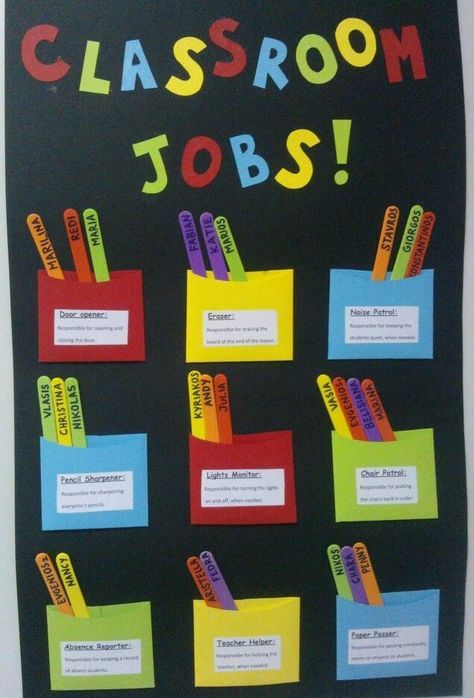 CLASSROOM
JOBS!
MARILINA
REDI
MARIA
Door opener:
Responsible for opening and
closing the door.
FABIAN
KATIE
MARIOS
Eraser:
Responsible for erasing the
board at the end of the lesson.
STAVROS
GIORGOS
KONSTANTINOS
Noise Patrol:
Responsible for keeping the
students quiet, when needed.
VLASIS
CHRISTINA
NIKOLAS
Pencil Sharpener:
Responsible for sharpening
everyone's pencils.
KYRIAKOS
ANDY
JULIA
Lights Monitor:
Responsible for turning the lights
on and off, when needed.
VASIA
EVGENIOS
BELISIANA
MARINA
Chair Patrol:
Responsible for putting
the chairs back in order.
EVGENIOS 2
NANCY
Absence Reporter:
Responsible for keeping a record
of absent students.
ARISTELLA
FEDRA
Teacher Helper:
Responsible for helping the
teacher, when needed.
NIKOS
CHARA
PENNY
Paper Passer:
Responsible for passing notebooks,
exams or projects to students.